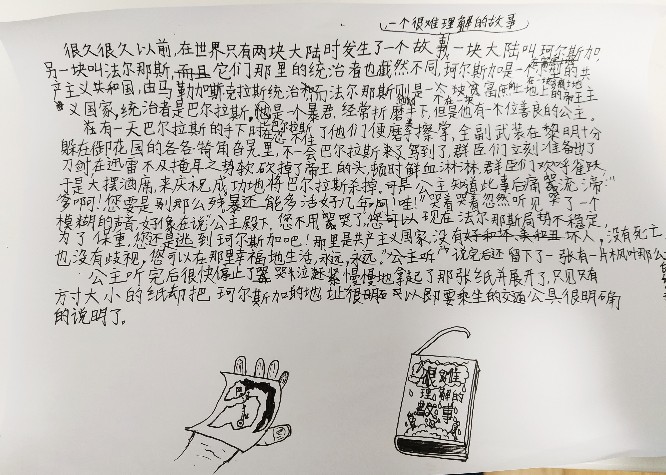 一个很难理解的故事
很久很久以前,在世界只有两块大陆时发生了一个故事,一块大陆叫珂尔斯加,
另一块叫法尔那斯,而且它们那里的统治者也截然不同,珂尔斯加是一个 的共
产主义共和国,由马勒加斯克拉斯统治 而法尔那斯则是一个 帝王主
义国家,统治者是巴尔拉斯。他是一个暴君,经常折磨手下,但是他有一位善良的公主。
在有一天巴尔拉斯的手下 了他们使磨拳擦掌,全副武装在黎明十分
躲在御花园的各各犄角旮旯里,不一会巴尔拉斯来了骂到了,群臣们立刻准备 了
刀剑在迅雷不及掩耳之势 砍掉了帝王的头,顿时鲜血淋淋,群臣们欢呼雀跃,
于是大摆酒席,来庆祝成功地将巴尔拉斯杀掉。可是公主知道此事后痛哭流涕“
爹啊!您要是别那么残暴还能多活好几年啊!哇!”哭着哭着忽然听见 了一个
模糊的声音,好像在说“公主殿下,您不用哭了,您可以 现在法尔那斯局势不稳定,
为了保重,您还是逃到珂尔斯加吧!那里是共产主义国家,没有 坏人,没有死亡,
也没有歧视,您可以在那里幸福地生活,永远,永远,”公主听 说完后还留下了一张有一片枫叶那么
公主听完后很快停止了哭泣 慢慢地拿起了那张纸并展开了,只见只有
方寸大小的纸却把珂尔斯加的地址很明 以即要乘坐的交通公具很明确
的说明了。
很难
理解的
故事